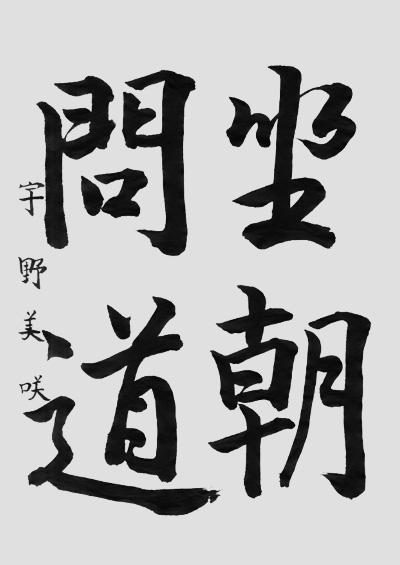 坐朝
問道
宇野美咲